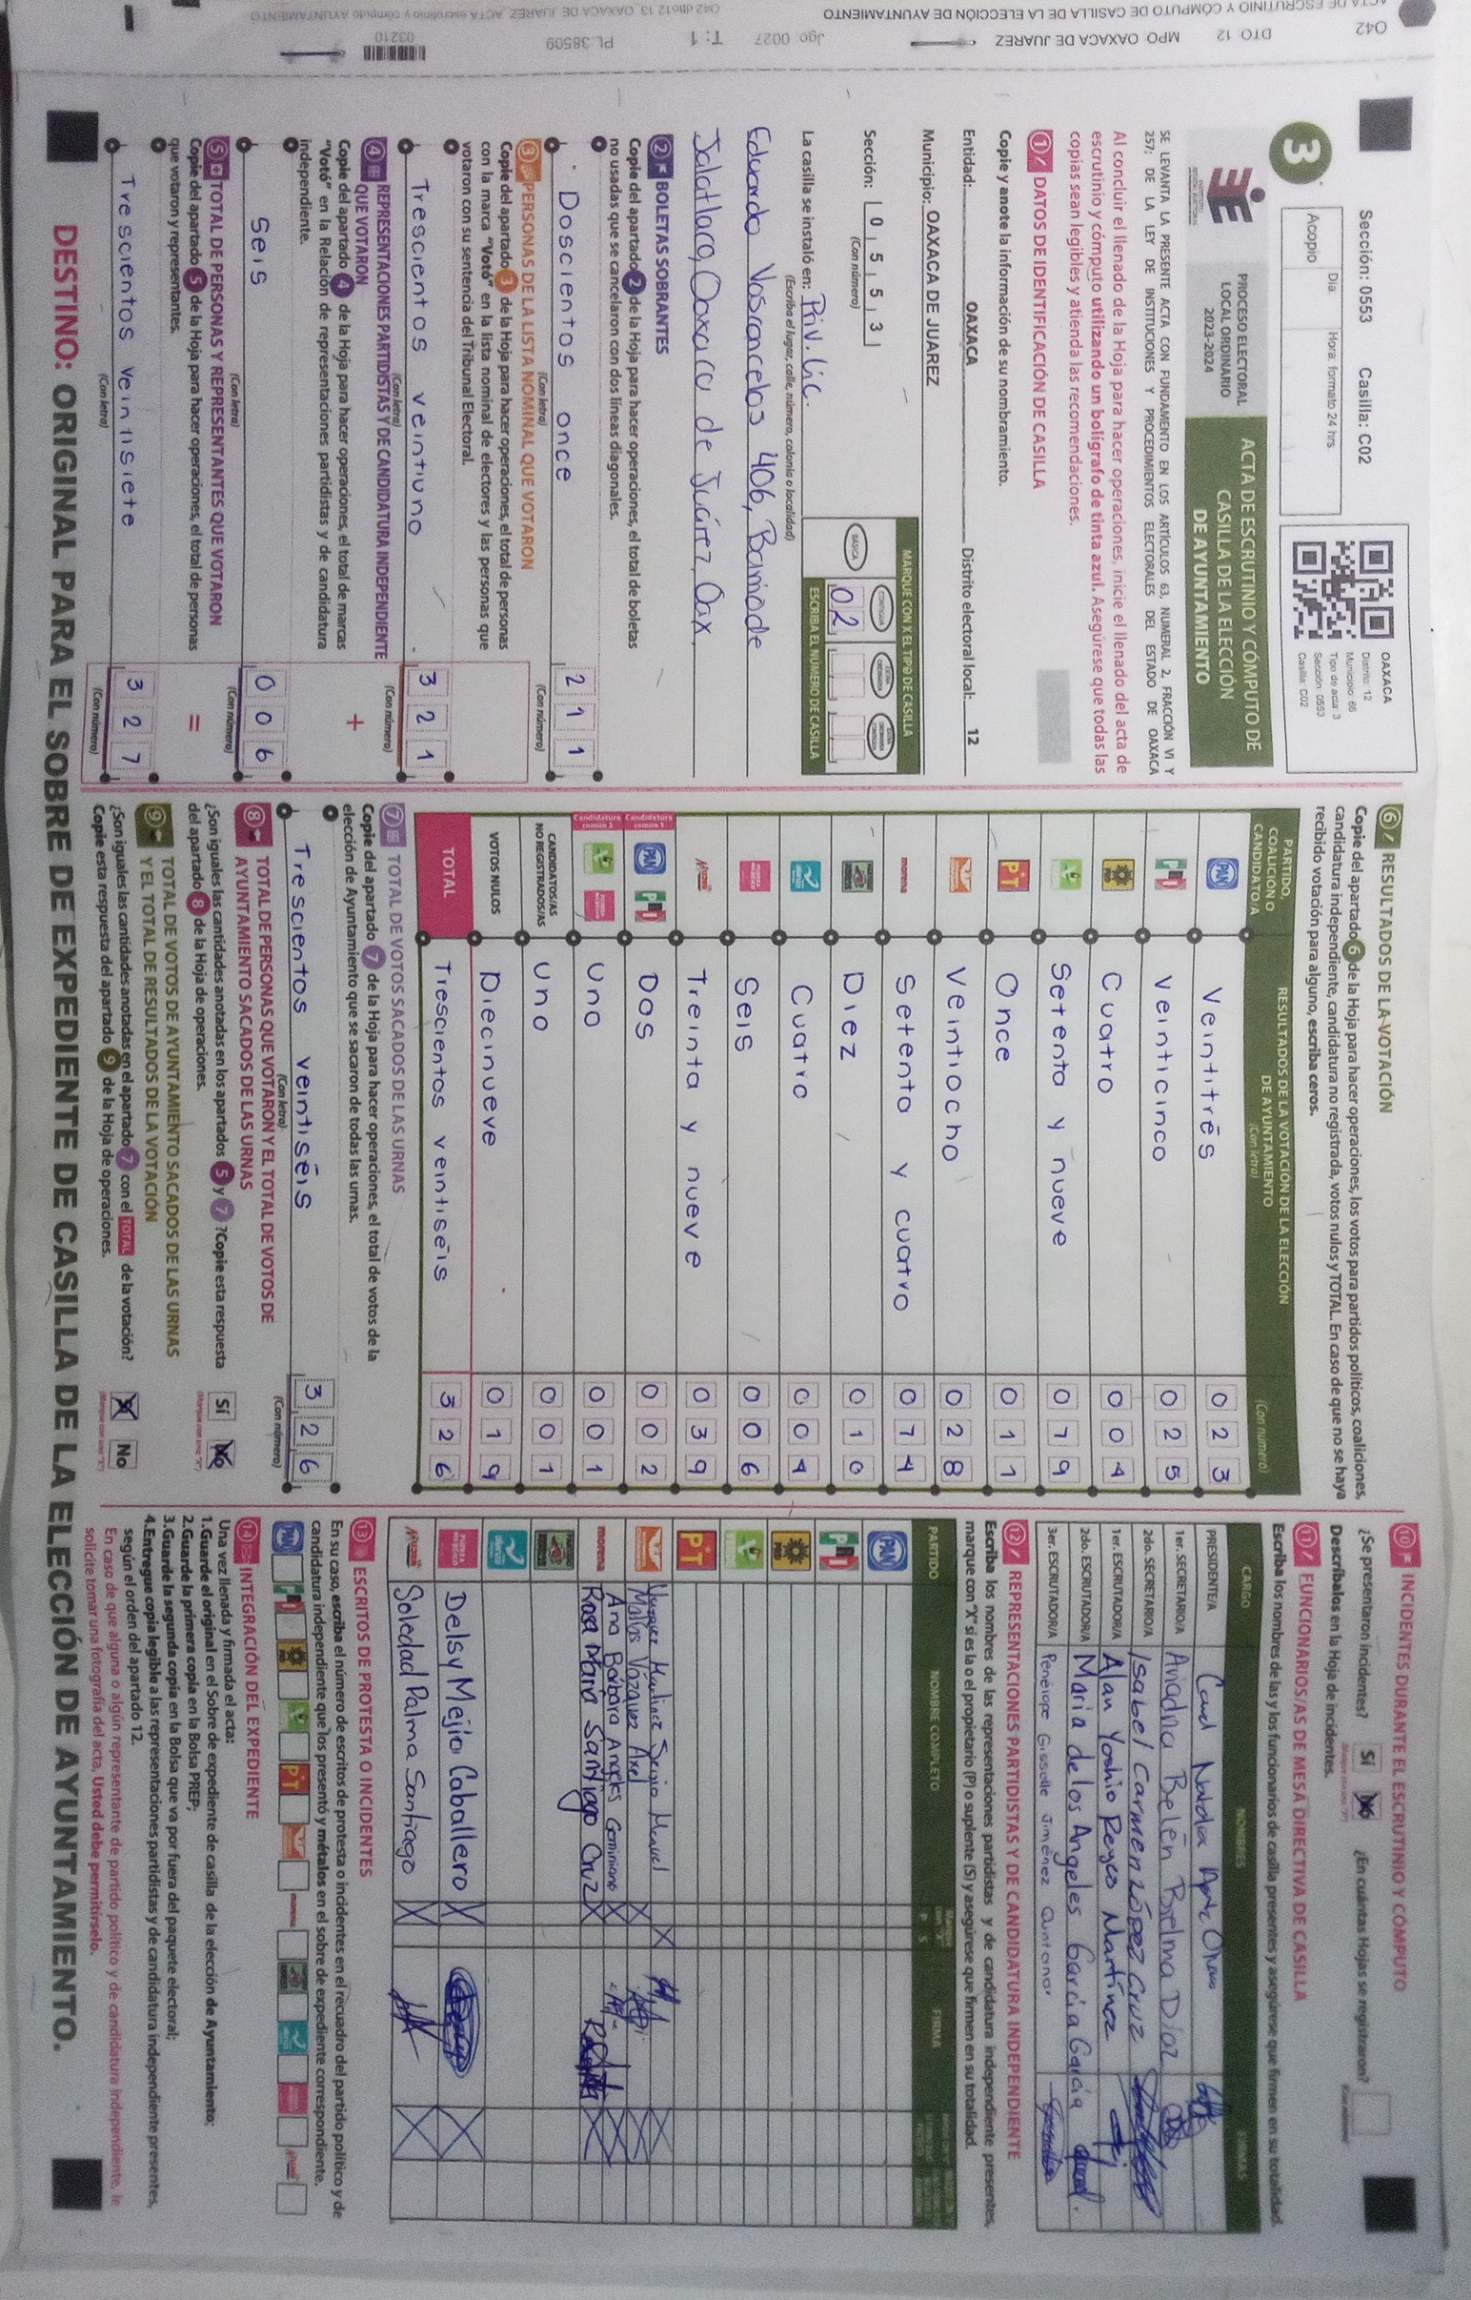 Sección: 0553 Casilla: C02
Día Hora: formato 24 hrs
3 Acopio
OAXACA
Distrito: 12
Municipio: 66
Tipo de acta: 3
Sección: 0553
Casilla: C02
PROCESO ELECTORAL
LOCAL ORDINARIO
2023-2024
ACTA DE ESCRUTINIO Y CÓMPUTO DE
CASILLA DE LA ELECCIÓN
DE AYUNTAMIENTO
SE LEVANTA LA PRESENTE ACTA CON FUNDAMENTO EN LOS ARTÍCULOS 63, NUMERAL 2, FRACCIÓN VI Y
257; DE LA LEY DE INSTITUCIONES Y PROCEDIMIENTOS ELECTORALES DEL ESTADO DE OAXACA
Al concluir el llenado de la Hoja para hacer operaciones, inicie el llenado del acta de
escrutinio y cómputo utilizando un bolígrafo de tinta azul. Asegúrese que todas las
copias sean legibles y atienda las recomendaciones.
1 DATOS DE IDENTIFICACIÓN DE CASILLA
Copie y anote la información de su nombramiento.
Entidad: OAXACA Distrito electoral local: 12
Municipio: OAXACA DE JUAREZ
MARQUE CON X EL TIPO DE CASILLA
Sección: 0 5 5 3
(Con número)
BÁSICA
02
ESCRIBA EL NÚMERO DE CASILLA
La casilla se instaló en: Priv. Lic.
(Escriba el lugar, calle, número, colonia o localidad)
Eduardo Vasconcelos 406, Barrio de
Jalatlaco, Oaxaca de Juárez, Oax.
2 BOLETAS SOBRANTES
Copie del apartado 2 de la Hoja para hacer operaciones, el total de boletas
no usadas que se cancelaron con dos líneas diagonales.
Doscientos once 2 1 1
(Con letra) (Con número)
3 PERSONAS DE LA LISTA NOMINAL QUE VOTARON
Copie del apartado 3 de la Hoja para hacer operaciones, el total de personas
con la marca "Votó" en la lista nominal de electores y las personas que
votaron con su sentencia del Tribunal Electoral.
Trescientos veintiuno 3 2 1
(Con letra) (Con número)
4 REPRESENTACIONES PARTIDISTAS Y DE CANDIDATURA INDEPENDIENTE
QUE VOTARON
+
Copie del apartado 4 de la Hoja para hacer operaciones, el total de marcas
"Votó" en la Relación de representaciones partidistas y de candidatura
independiente.
Seis 0 0 6
(Con letra) (Con número)
5 TOTAL DE PERSONAS Y REPRESENTANTES QUE VOTARON
=
Copie del apartado 5 de la Hoja para hacer operaciones, el total de personas
que votaron y representantes.
Trescientos veintisiete 3 2 7
(Con letra) (Con número)
6 RESULTADOS DE LA VOTACIÓN
Copie del apartado 6 de la Hoja para hacer operaciones, los votos para partidos políticos, coaliciones,
candidatura independiente, candidatura no registrada, votos nulos y TOTAL. En caso de que no se haya
recibido votación para alguno, escriba ceros.
PARTIDO,
COALICIÓN O
CANDIDATO/A
RESULTADOS DE LA VOTACIÓN DE LA ELECCIÓN
DE AYUNTAMIENTO
(Con letra) (Con número)
PAN Veintitrés 0 2 3
PRI Veinticinco 0 2 5
PRD Cuatro 0 0 4
Setenta y nueve 0 7 9
PT Once 0 1 1
Veintiocho 0 2 8
morena Setenta y cuatro 0 7 4
Diez 0 1 0
Cuatro 0 0 4
Seis 0 0 6
Treinta y nueve 0 3 9
Candidatura común 1 PAN PRI Dos 0 0 2
Candidatura común 2 Uno 0 0 1
CANDIDATOS/AS
NO REGISTRADOS/AS Uno 0 0 1
VOTOS NULOS Diecinueve 0 1 9
TOTAL Trescientos veintiséis 3 2 6
7 TOTAL DE VOTOS SACADOS DE LAS URNAS
Copie del apartado 7 de la Hoja para hacer operaciones, el total de votos de la
elección de Ayuntamiento que se sacaron de todas las urnas.
Trescientos veintiséis 3 2 6
(Con letra) (Con número)
8 TOTAL DE PERSONAS QUE VOTARON Y EL TOTAL DE VOTOS DE
AYUNTAMIENTO SACADOS DE LAS URNAS
¿Son iguales las cantidades anotadas en los apartados 5 y 7 ?Copie esta respuesta
del apartado 8 de la Hoja de operaciones.
Sí No
9 TOTAL DE VOTOS DE AYUNTAMIENTO SACADOS DE LAS URNAS
Y EL TOTAL DE RESULTADOS DE LA VOTACIÓN
¿Son iguales las cantidades anotadas en el apartado 7 con el TOTAL de la votación?
Copie esta respuesta del apartado 9 de la Hoja de operaciones.
Sí No
10 INCIDENTES DURANTE EL ESCRUTINIO Y CÓMPUTO
¿Se presentaron incidentes? Sí No ¿En cuántas Hojas se registraron?
Descríbalos en la Hoja de incidentes.
11 FUNCIONARIOS/AS DE MESA DIRECTIVA DE CASILLA
Escriba los nombres de las y los funcionarios de casilla presentes y asegúrese que firmen en su totalidad.
CARGO NOMBRES FIRMAS
PRESIDENTE/A
1er. SECRETARIO/A Ariadna Belén Bielma Díaz
2do. SECRETARIO/A Isabel Carmen López Cruz
1er. ESCRUTADOR/A Alan Yoshio Reyes Martínez
2do. ESCRUTADOR/A María de los Angeles García García
3er. ESCRUTADOR/A Penélope Gisselle Jiménez Quintanar
12 REPRESENTACIONES PARTIDISTAS Y DE CANDIDATURA INDEPENDIENTE
Escriba los nombres de las representaciones partidistas y de candidatura independiente presentes,
marque con "X" si es la o el propietario (P) o suplente (S) y asegúrese que firmen en su totalidad.
PARTIDO NOMBRE COMPLETO P S FIRMA
PAN
PRI
PRD
PT
Mallos Vázquez Axel
morena Ana Bárbara Angeles Geminiano
Rosa María Santiago Cruz
Delsy Mejía Caballero
Soledad Palma Santiago
13 ESCRITOS DE PROTESTA O INCIDENTES
En su caso, escriba el número de escritos de protesta o incidentes en el recuadro del partido político y de
candidatura independiente que los presentó y métalos en el sobre de expediente correspondiente.
PAN PRI PRD PT morena
14 INTEGRACIÓN DEL EXPEDIENTE
Una vez llenada y firmada el acta:
1.Guarde el original en el Sobre de expediente de casilla de la elección de Ayuntamiento;
2.Guarde la primera copia en la Bolsa PREP;
3.Guarde la segunda copia en la Bolsa que va por fuera del paquete electoral;
4.Entregue copia legible a las representaciones partidistas y de candidatura independiente presentes,
según el orden del apartado 12.
En caso de que alguna o algún representante de partido político y de candidatura independiente, le
solicite tomar una fotografía del acta, Usted debe permitírselo.
DESTINO: ORIGINAL PARA EL SOBRE DE EXPEDIENTE DE CASILLA DE LA ELECCIÓN DE AYUNTAMIENTO.
042 DTO 12 MPO OAXACA DE JUAREZ Jgo 0027 T: 1 PL-38509 03210
ACTA DE ESCRUTINIO Y CÓMPUTO DE CASILLA DE LA ELECCIÓN DE AYUNTAMIENTO